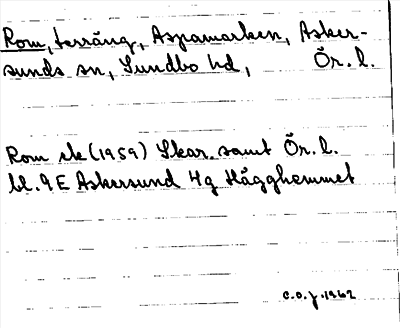 Rom, terräng, Aspamarken, Asker-
sunds sn, Sundbo hd, Ör. l.
Rom ek (1959) Skar. samt Ör. l.
bl. 9E Askersund 4g Hägghemmet
C.O.J. 1962